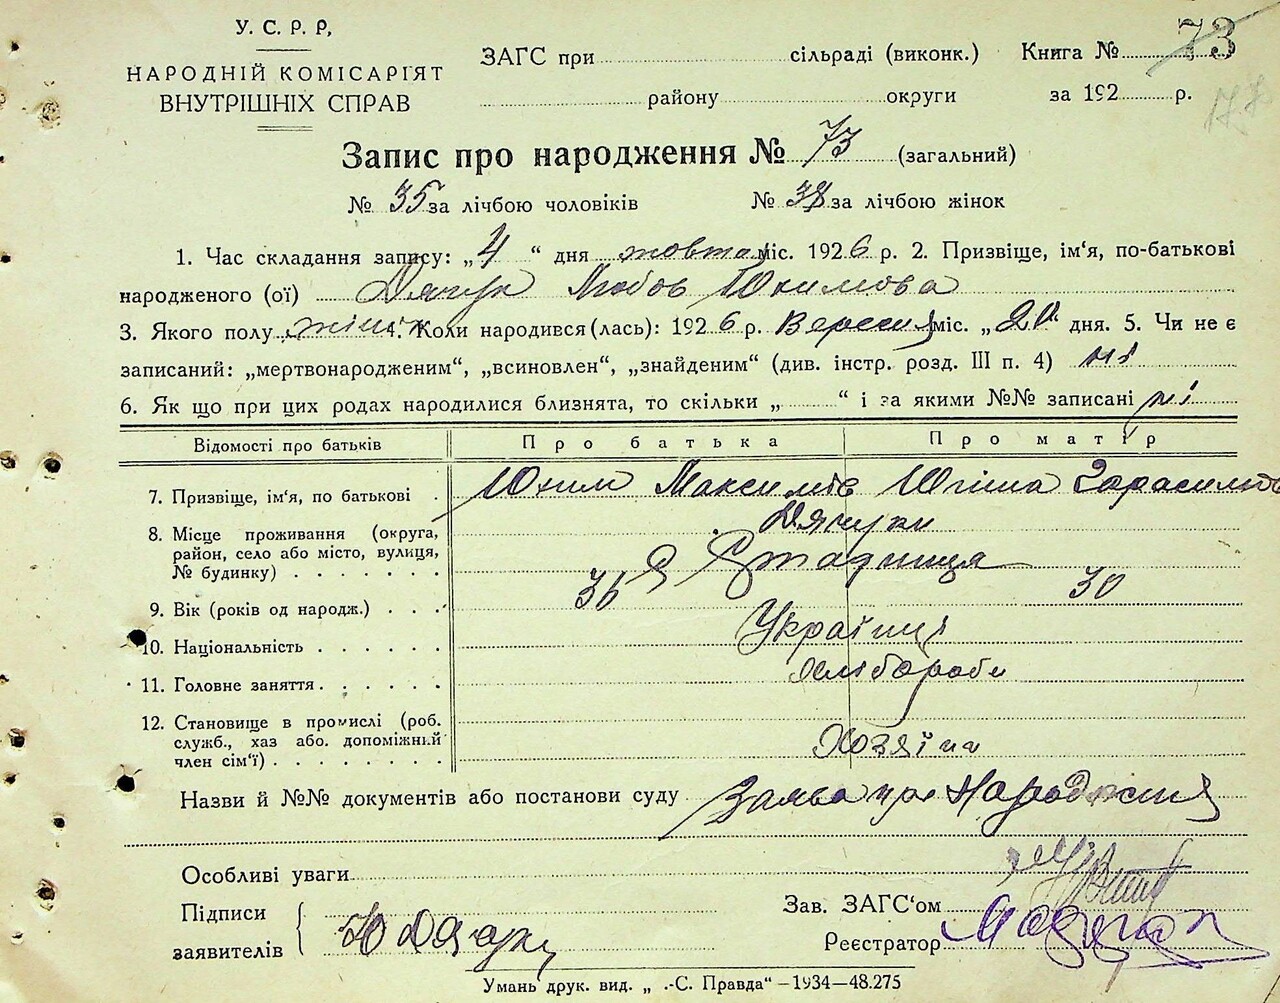 У. С. Р. Р,
НАРОДНІЙ КОМІСАРІЯТ
ВНУТРІШНІХ СПРАВ
ЗАГС при сільраді (виконк.) Книга № 73
району округи за 192 р.
Запис про народження № 73 (загальний)
№ 35 за лічбою чоловіків № 38 за лічбою жінок
1. Час складання запису: „4“ дня жовтня міс. 1926 р. 2. Призвіще, ім'я, по-батькові
народженого (ої) Дячук Любов Юхимова
3. Якого полу жіноч 4. Коли народився (лась): 1926 р. Вересня міс. „20“ дня. 5. Чи не є
записаний: „мертвонародженим“, „всиновлен“, „знайденим“ (див. інстр. розд. III п. 4) ні
6. Як що при цих родах народилися близнята, то скільки „ “ і за якими №№ записані ні
Відомості про батьків Про батька Про матір
7. Призвіще, ім'я, по батькові Юхим Максимів
Дячуки
8. Місце проживання (округа,
район, село або місто, вулиця,
№ будинку) Стадниця
9. Вік (років од народж.) 36 30
10. Національність Українці
11. Головне заняття Хлібороби
12. Становище в промислі (роб.
служб., хаз або. допоміжний
член сім'ї) Хозяїни
Назви й №№ документів або постанови суду Заява про Народження
Особливі уваги
Підписи
заявителів Ю Дячук
Зав. ЗАГС'ом
Реєстратор
Умань друк. вид. „ .-С. Правда“ -1934-48.275